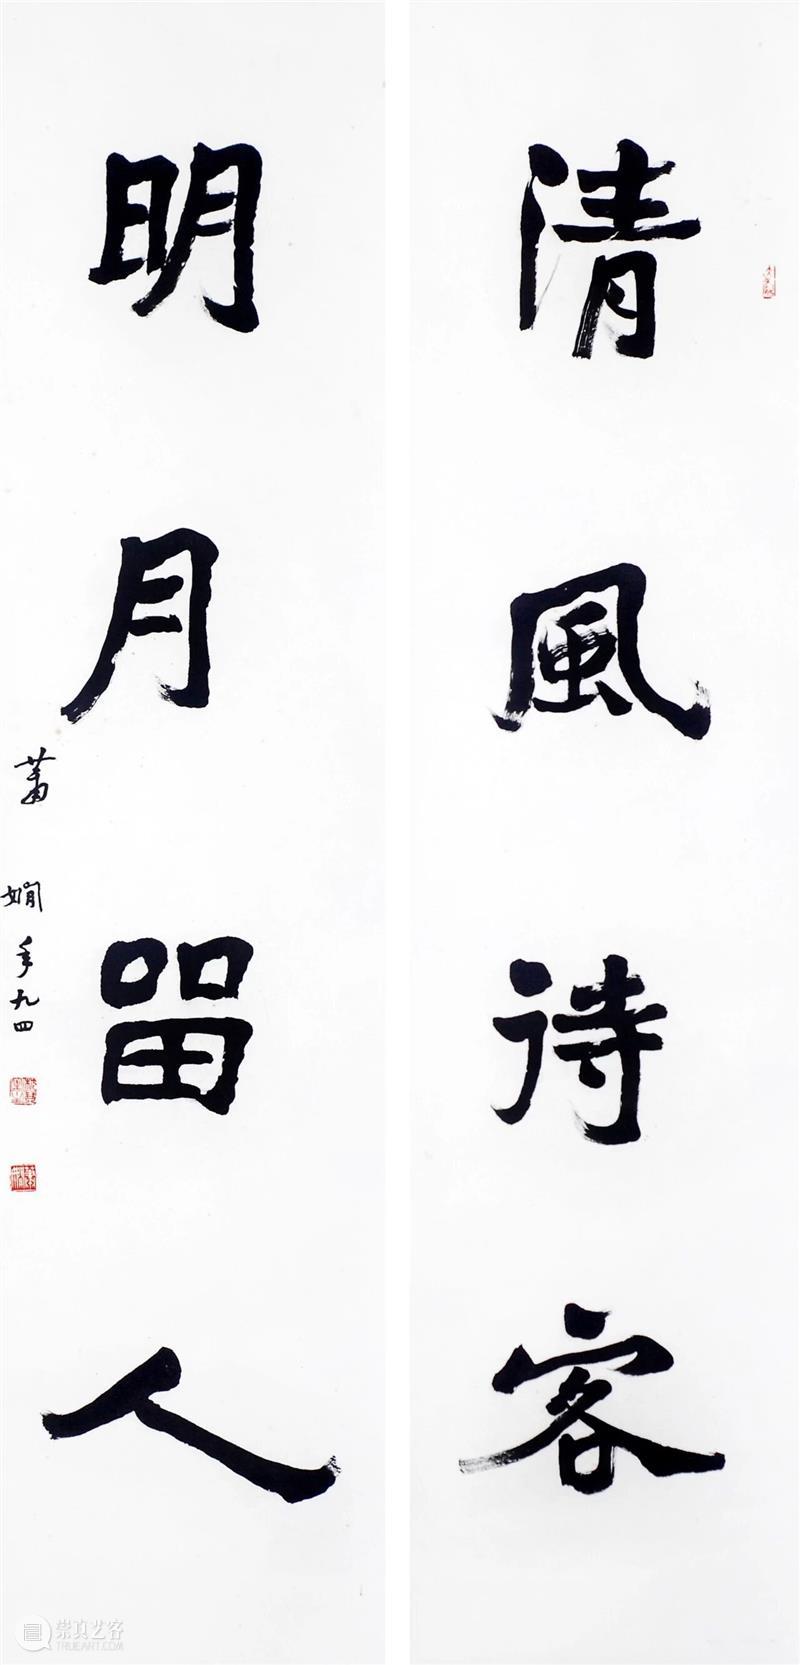 清風待客
明月留人
蕭嫻年九四
崇真艺客
TRUEART.COM